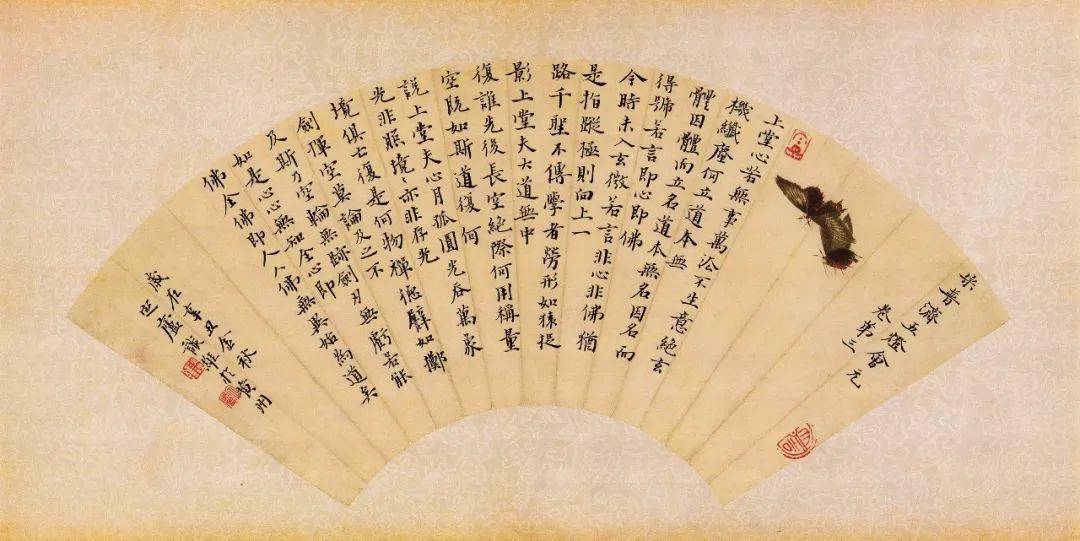 宋普濟五燈會元
卷第三
上堂心若無事萬法不生意絕玄
機纖塵何立道本無
體因體而立名道本無名因名而
得號若言即心即佛
今時未入玄微若言非心非佛猶
是指蹤極則向上一
路千聖不傳學者勞形如猿捉
影上堂夫大道無中
復誰先後長空絕際何用稱量
空既如斯道復何
說上堂夫心月孤圓光吞萬象
光非照境々亦非存光
境俱亡復是何物禪德譬如擲
劍揮空莫論及之不
及斯乃空輪無跡劍刃無虧若能
如是心心無知全心即
佛全佛即人人佛無異始為道矣
歲在辛丑金秋
黃州